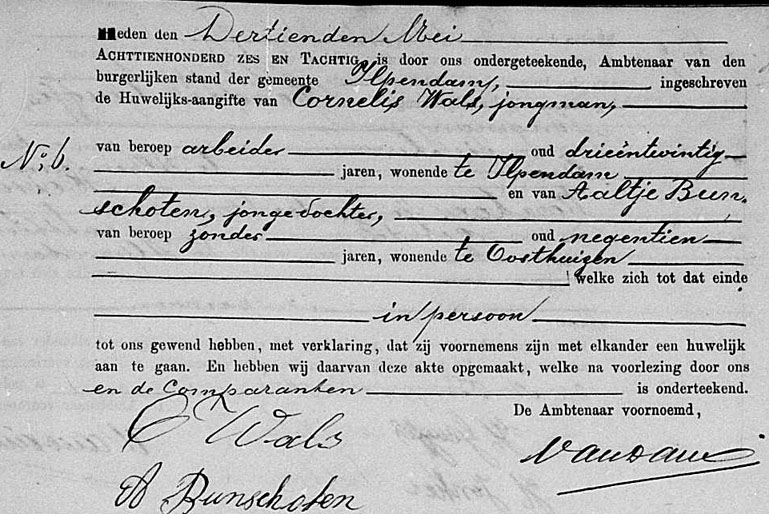 Heden den Dertienden Mei
ACHTTIENHONDERD ZES EN TACHTIG, is door ons ondergeteekende, Ambtenaar van den
burgerlijken stand der gemeente Ilpendam, ingeschreven
de Huwelijks-aangifte van Cornelis Wals, jongman,
No. 6. van beroep arbeider oud drieëntwintig
jaren, wonende te Ilpendam
en van Aaltje Bun-
schoten, jongedochter,
van beroep zonder oud negentien
jaren, wonende te Oosthuizen
welke zich tot dat einde
in persoon
tot ons gewend hebben, met verklaring, dat zij voornemens zijn met elkander een huwelijk
aan te gaan. En hebben wij daarvan deze akte opgemaakt, welke na voorlezing door ons
en de Comparanten is onderteekend.
De Ambtenaar voornoemd,
C Wals
A Bunschoten